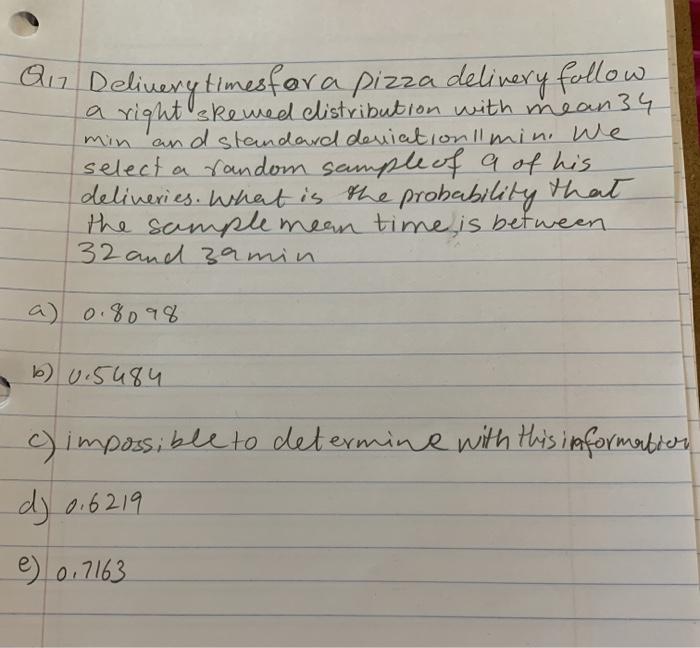 Q17 Delivery times for a pizza delivery follow
a right skewed distribution with mean 34
min and standard deviation 11 min. We
select a random sample of 9 of his
deliveries. What is the probability that
the sample mean time, is between
32 and 39 min
a) 0.8098
b) 0.5484
c) impossible to determine with this information
d) 0.6219
e) 0.7163